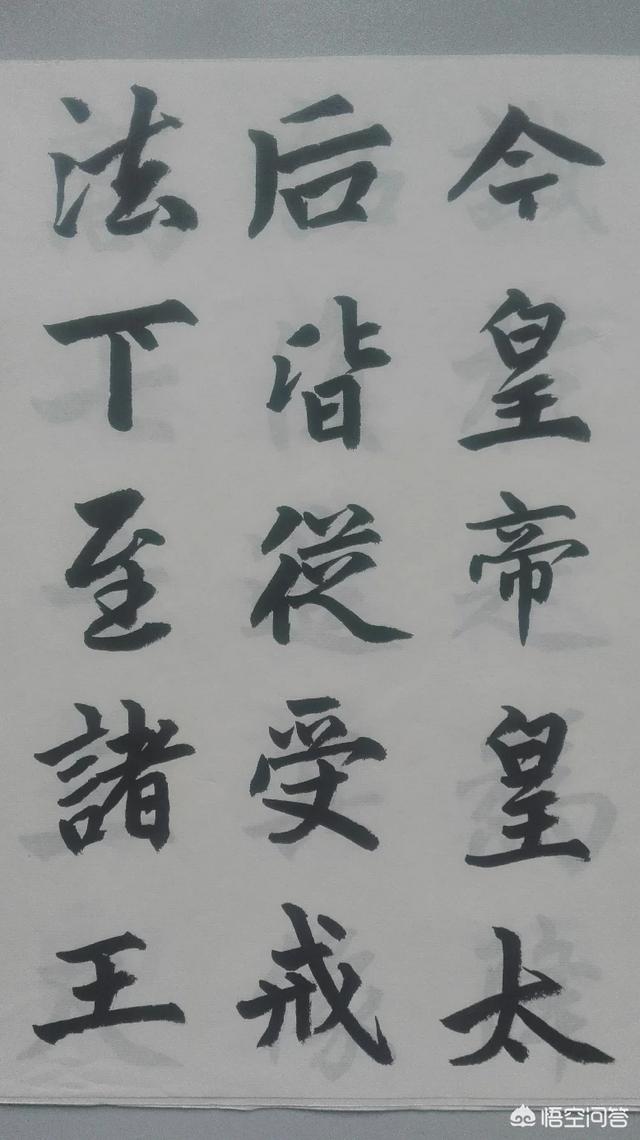 今皇帝皇太
后皆從受戒
法下至諸王
悟空问答